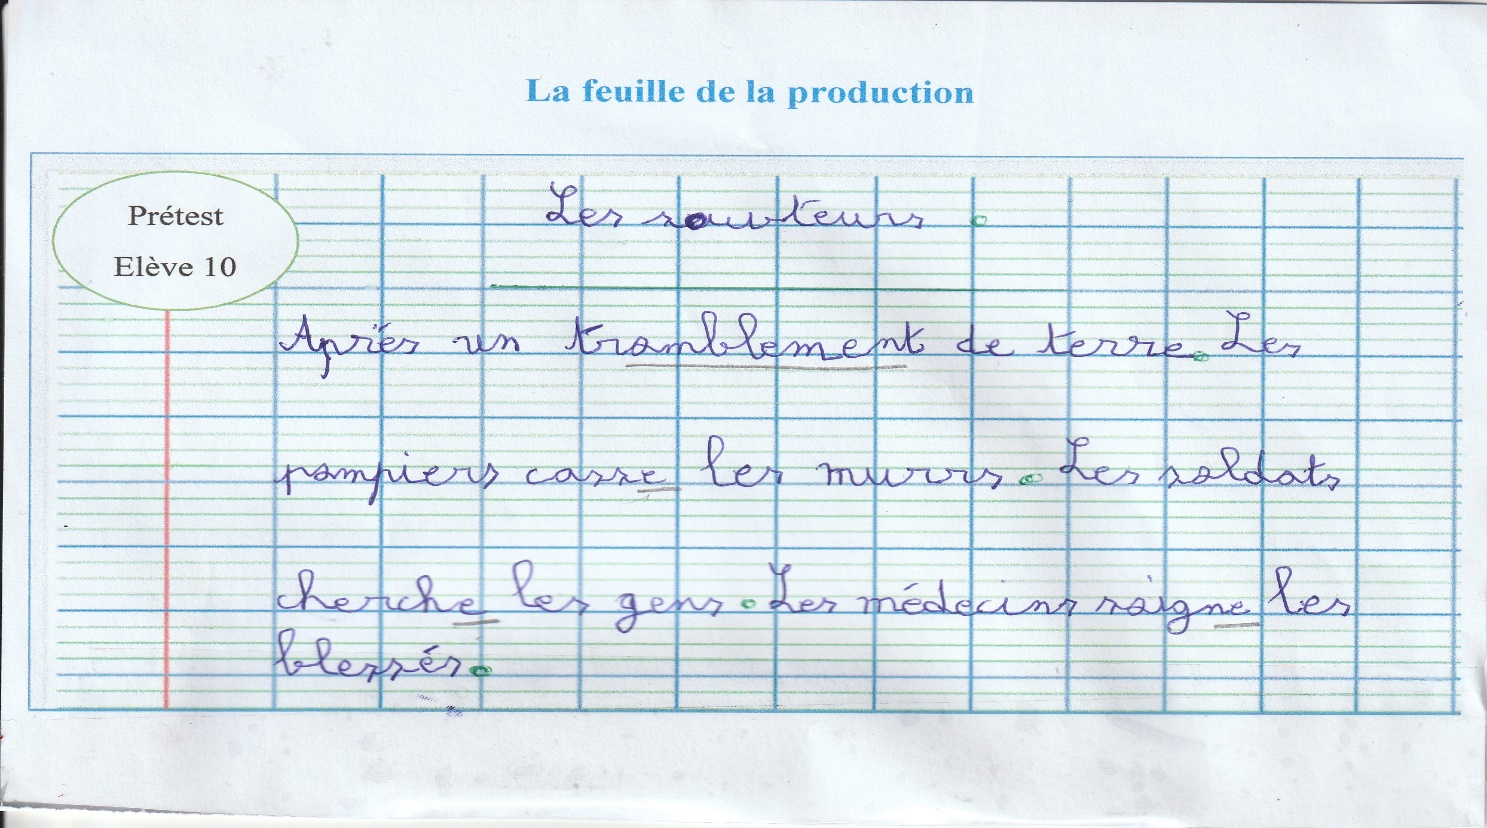 La feuille de la production
Prétest
Elève 10
Les sauteurs.
Après un tramblement de terre. Les
pampiers casse les murrs. Les soldats
cherche les gens. Les médecins saigne les
blessés.